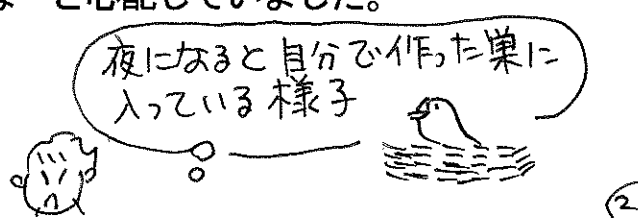 と心配していました。
夜になると自分で作った巣に
入っている様子
2